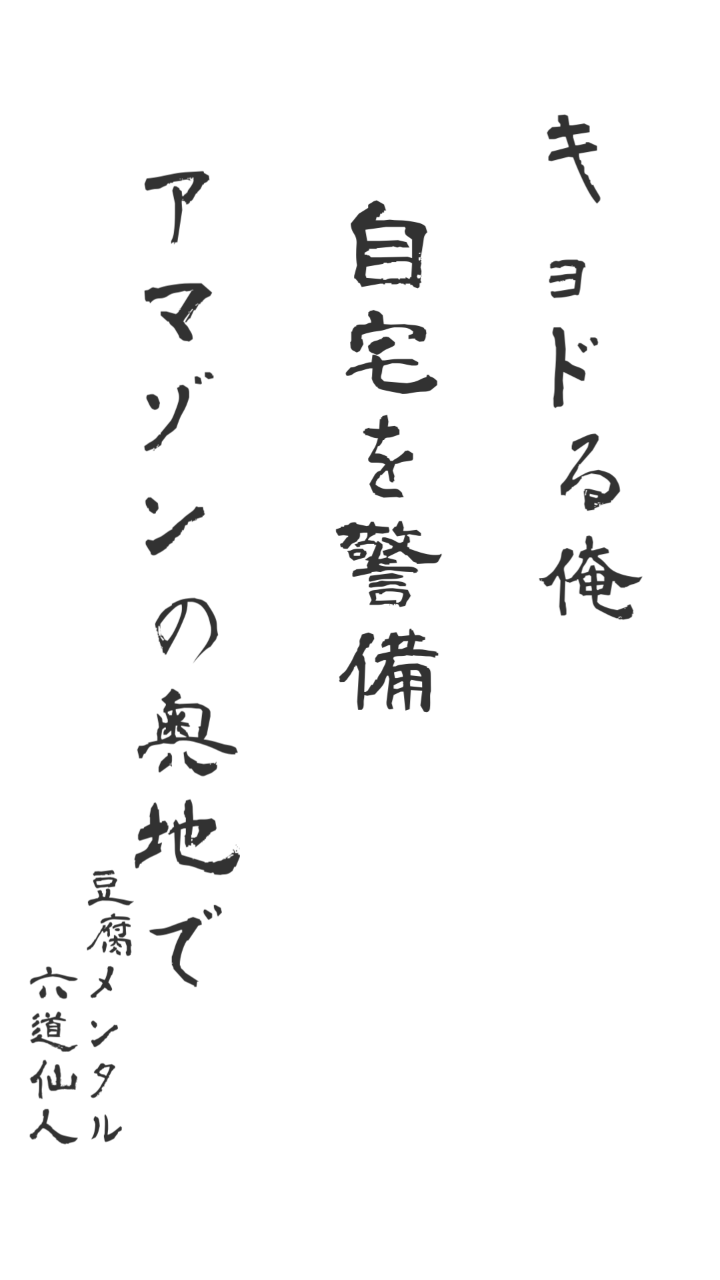 キョドる俺
自宅を警備
アマゾンの奥地で
豆腐メンタル
六道仙人